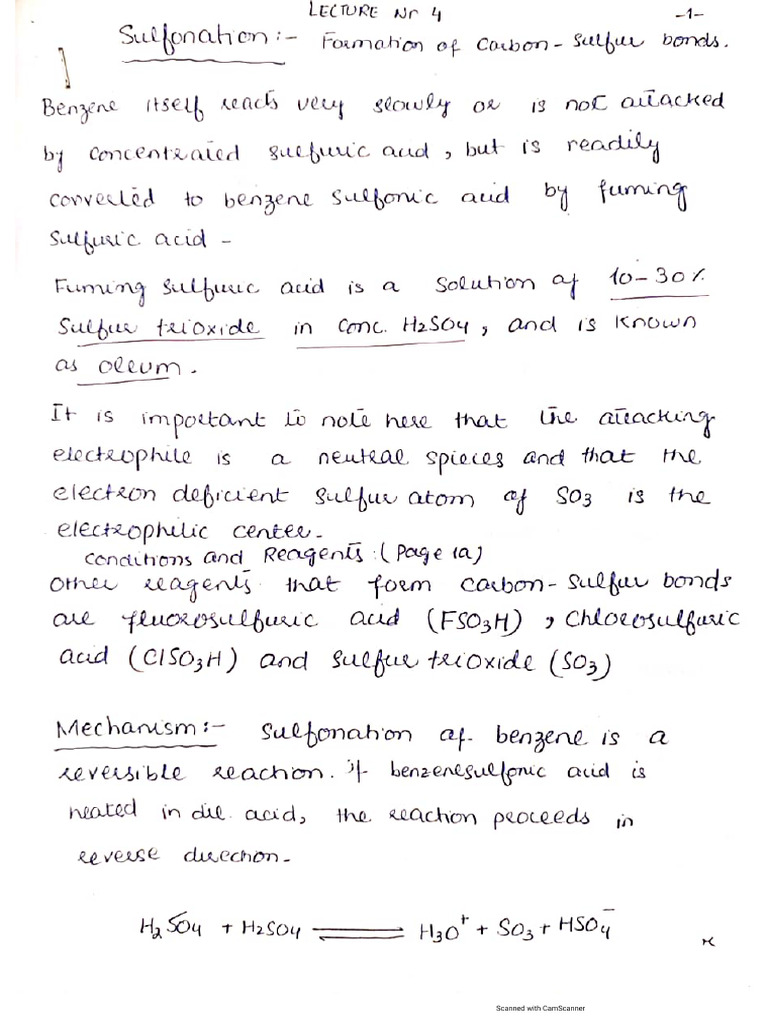 LECTURE Nr 4 -1-
Sulfonation:- Formation of Carbon-Sulfur bonds.
Benzene itself reacts very slowly or is not attacked
by concentrated sulfuric acid, but is readily
converted to benzene sulfonic acid by fuming
sulfuric acid -
Fuming sulfuric acid is a solution of 10-30%
Sulfur trioxide in conc. H2SO4, and is known
as oleum.
It is important to note here that the attacking
electrophile is a neutral spieces and that the
electron deficient sulfur atom of SO3 is the
electrophilic center.
Conditions and Reagents: (Page 1a)
Other reagents that form carbon-sulfur bonds
are fluorosulfuric acid (FSO3H), Chlorosulfuric
acid (ClSO3H) and sulfur trioxide (SO3)
Mechanism:- Sulfonation of benzene is a
reversible reaction. If benzenesulfonic acid is
heated in dil. acid, the reaction proceeds in
reverse direction-
H2SO4 + H2SO4 ⇌ H3O+ + SO3 + HSO4-
Scanned with CamScanner